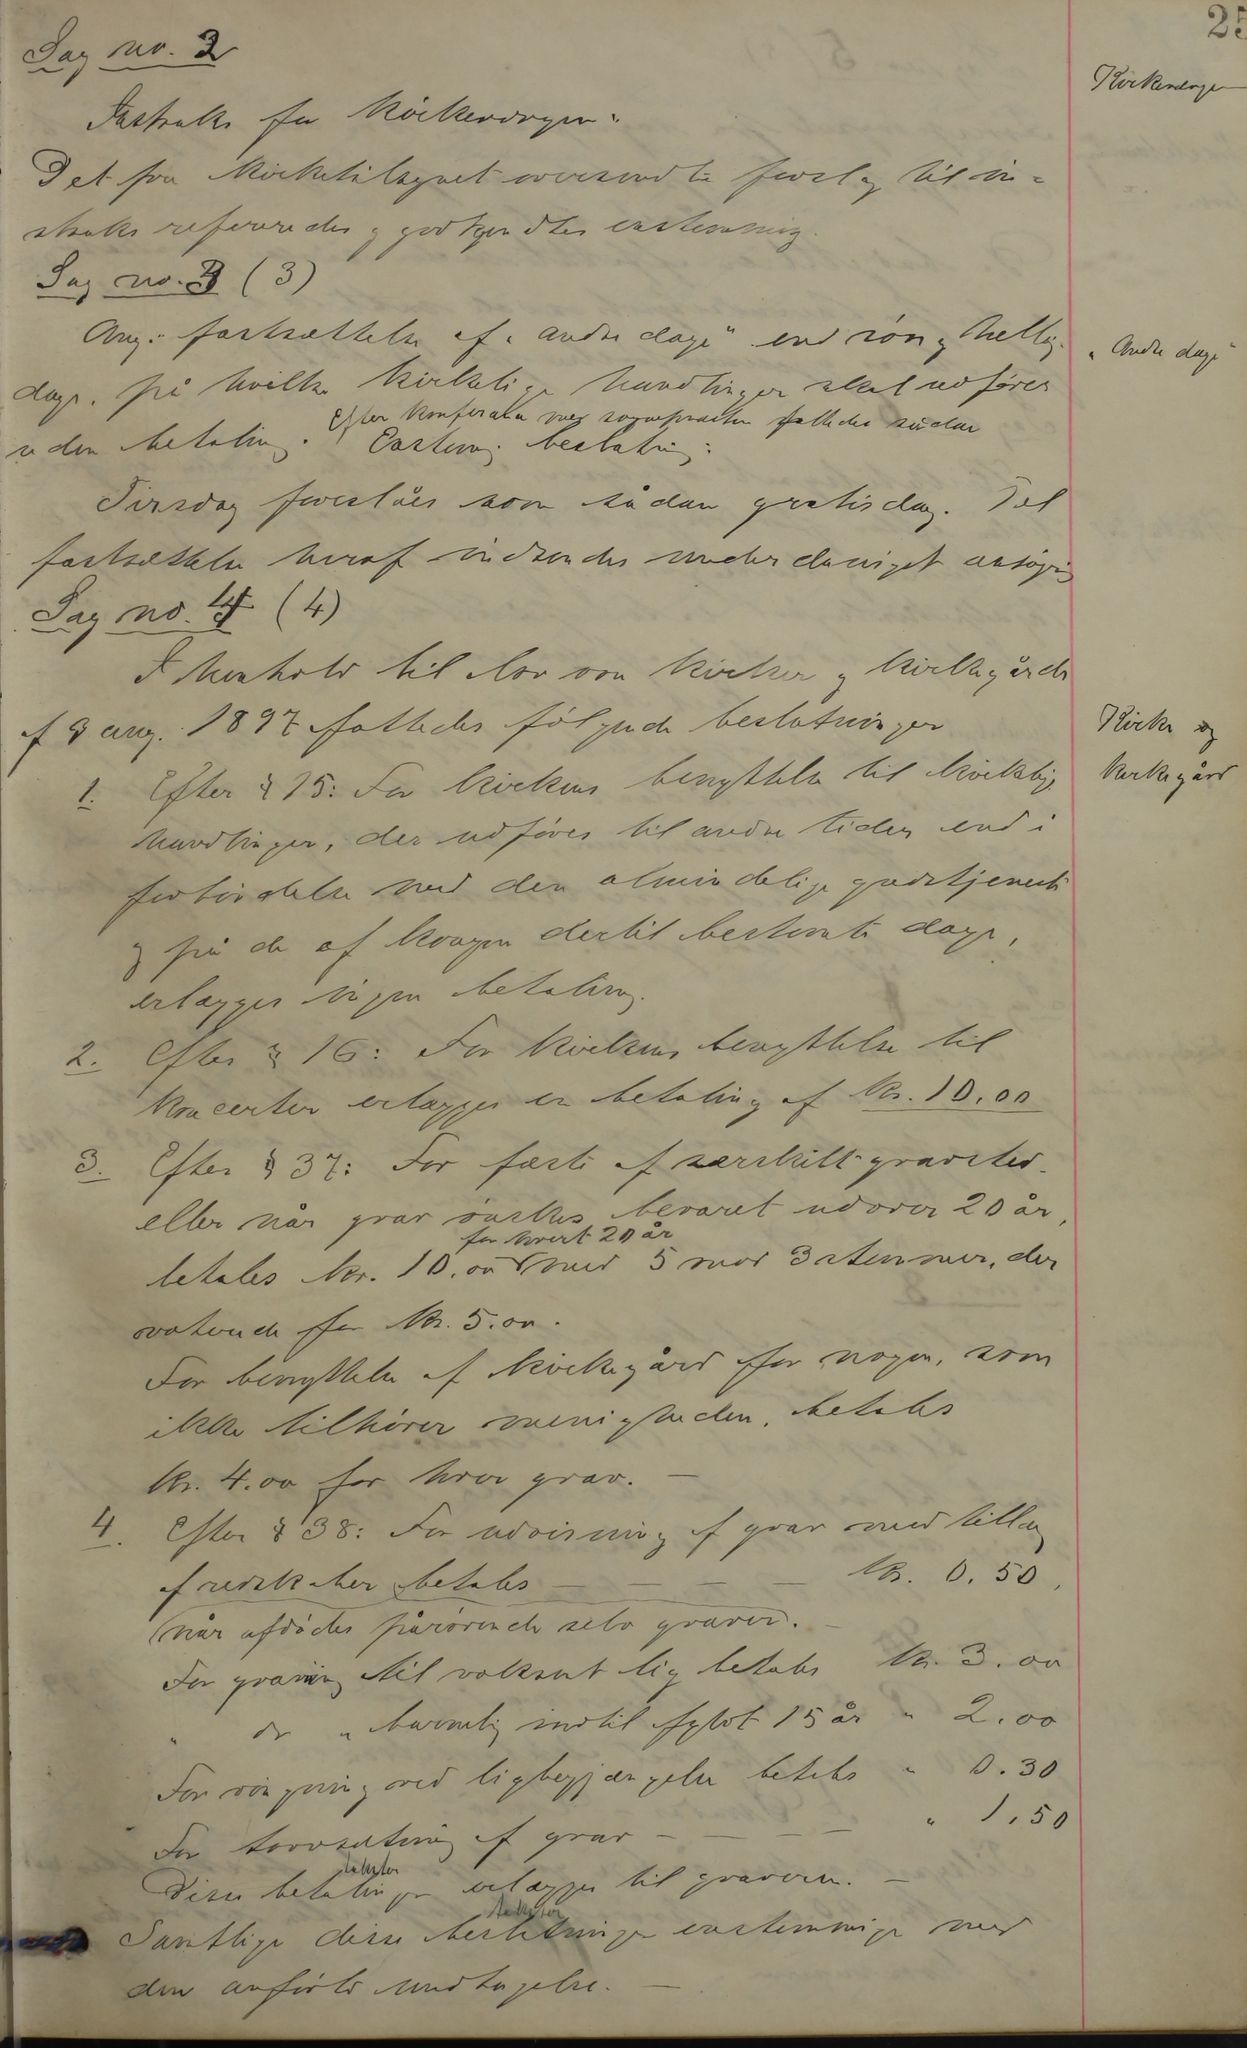 25
Sag no. 2
Kirkeverge
Instruks for kirkevergen.
Det fra kirketilsynet oversendte forslag til in-
struks refereredes og godkjendtes enstemmig.
Sag no. 3 (3)
Ang. fastsættelse af "andre dage" end søn- og hellig-
"Andre dage"
dage, på hvilke kirkelige handlinger skal udføres
uden betaling. Efter konferanse med sognepresten fattedes sådan
Enstemmig beslutning:
Tirsdag foreslåes som sådan gratisdag. Til
fastsættelse heraf indsendes underdanigst ansøgning
Sag no. 4 (4)
I henhold til lov om kirker og kirkegårde
af 3 aug. 1897 fattedes følgende beslutninger
Kirke og
kirkegård
1. Efter § 15: For kirkens benyttelse til kirkelige
handlinger, der udføres til andre tider end i
forbindelse med den almindelige gudstjeneste
og på de af kongen dertil bestemte dage,
erlægges ingen betaling.
2. Efter § 16: For kirkens benyttelse til
koncerter erlægges en betaling af kr. 10.00
3. Efter § 37: For fæste af særskilt gravsted
eller når grav ønskes bevaret udover 20 år,
for hvert 20 år
betales kr. 10.00 med 5 mod 3 stemmer, der
votende for kr. 5.00.
For benyttelse af kirkegård for nogen, som
ikke tilhører menigheden, betales
kr. 4.00 for hver grav. —
4. Efter § 38: For udvisning af grav med tillæg
af redskaber betales — — — — kr. 0.50,
når afdødes pårørende selv graver. —
For gravning til voksent lig betales kr. 3.00
" do " barnelig indtil fyldt 15 år " 2.00
For ringning ved ligbegjængelse betales " 0.30
For torvsætning af grav — — — — " 1.50
takster
Disse betalinger erlægges til graveren. —
takster
Samtlige disse beslutninger enstemmige med
den anførte undtagelse. —